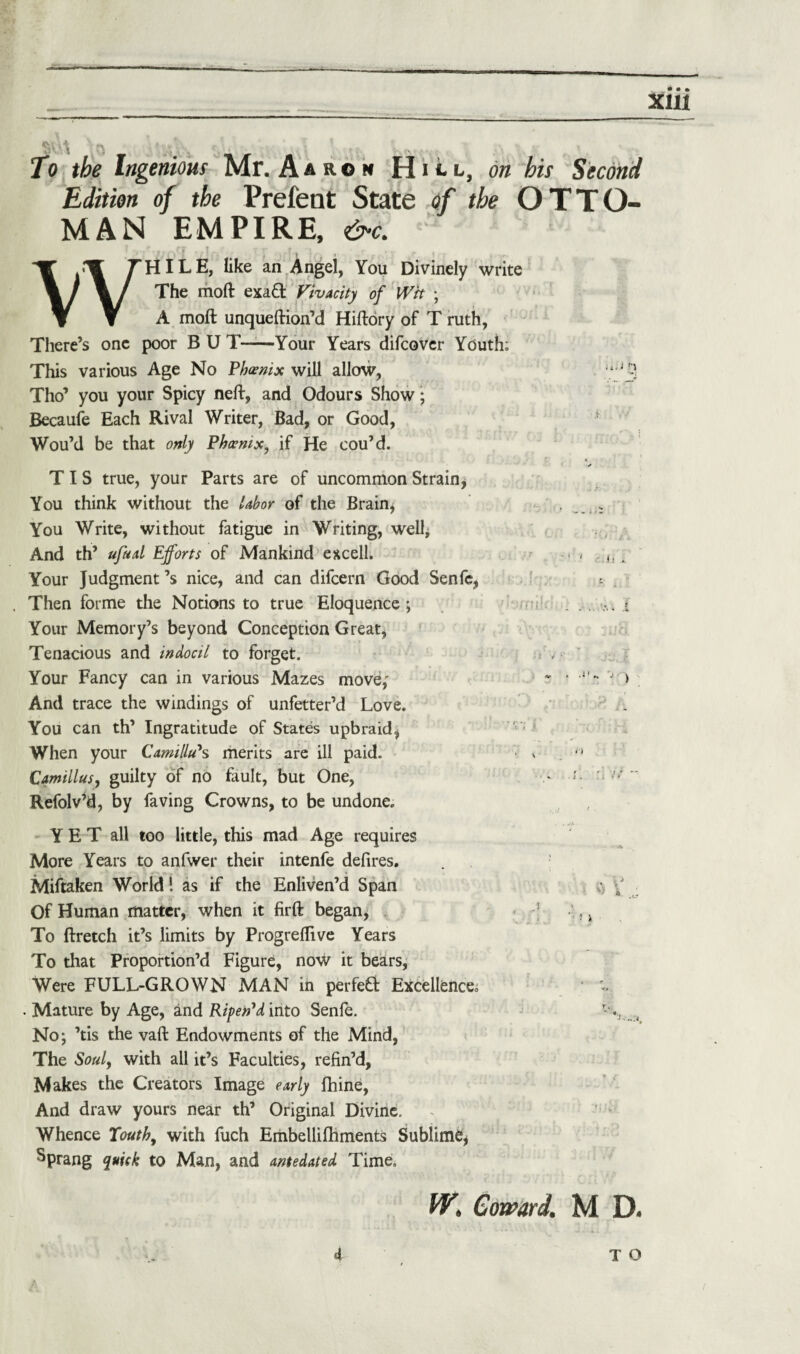 xiii
To the Ingenious Mr. AARON HILL, on his Second
Edition of the Preſent State of the OTTO-
MAN EMPIRE, &c.
WHILE, like an Angel, You Divinely write
The moſt exact Vivacity of Wit ;
A moſt unqueſtion'd Hiſtory of Truth,
There's one poor BUT——Your Years diſcover Youth:
This various Age No Phœnix will allow,
Tho' you your Spicy neſt, and Odours Show ;
Becauſe Each Rival Writer, Bad, or Good,
Wou'd be that only Phœnix, if He cou'd.
TIS true, your Parts are of uncommon Strain,
You think without the labor of the Brain,
You Write, without fatigue in Writing, well,
And th' uſual Efforts of Mankind excell.
Your Judgment's nice, and can diſcern Good Senſe,
Then forme the Notions to true Eloquence ;
Your Memory's beyond Conception Great,
Tenacious and indocil to forget.
Your Fancy can in various Mazes move,
And trace the windings of unfetter'd Love.
You can th' Ingratitude of States upbraid,
When your Camillu's merits are ill paid.
Camillus, guilty of no fault, but One,
Reſolv'd, by ſaving Crowns, to be undone.
YET all too little, this mad Age requires
More Years to anſwer their intenſe deſires.
Miſtaken World! as if the Enliven'd Span
Of Human matter, when it firſt began,
To ſtretch it's limits by Progreſſive Years
To that Proportion'd Figure, now it bears,
Were FULL-GROWN MAN in perfect Excellence.
Mature by Age, and Ripen'd into Senſe.
No; 'tis the vaſt Endowments of the Mind,
The Soul, with all it's Faculties, refin'd,
Makes the Creators Image early ſhine,
And draw yours near th' Original Divine.
Whence Youth, with ſuch Embelliſhments Sublime,
Sprang quick to Man, and antedated Time.
W. Coward. M D.
d
TO